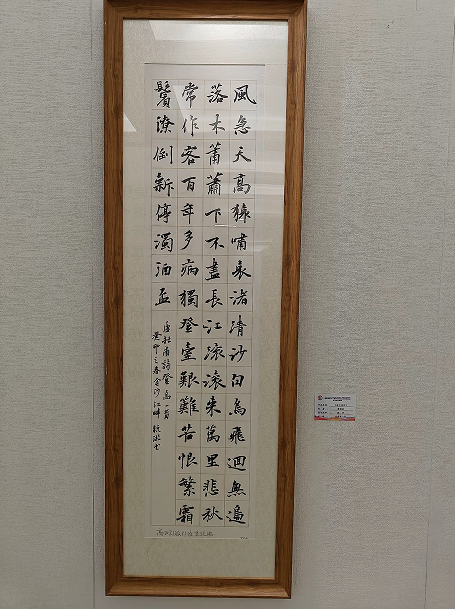 風急天高猿嘯哀渚清沙白鳥飛迴無邊
落木蕭蕭下不盡長江滾滾来萬里悲秋
常作客百年多病獨登臺艱難苦恨繁霜
鬢潦倒新停濁酒盃
唐杜甫詩登高一首
癸卯之春金沙江畔